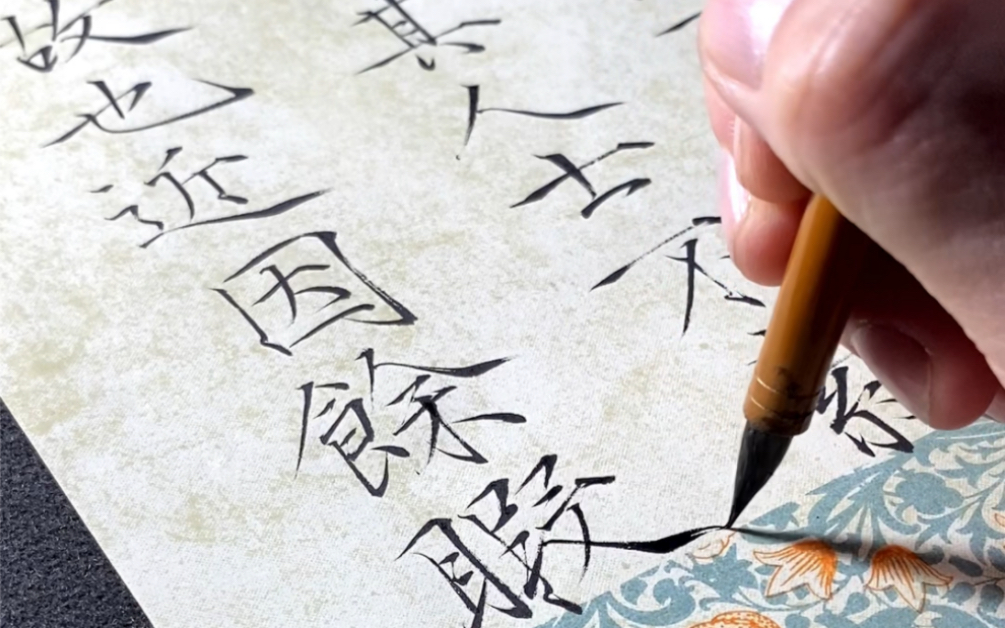 其人不
故也近因餘暇